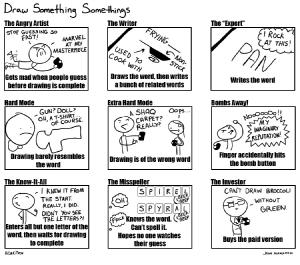 Draw Something Somethings
The Angry Artist
STOP GUESSING SO
FAST!
MARVEL
AT MY
MASTERPIECE
Gets mad when people guess
before drawing is complete
The Writer
FRYING
USED TO
COOK WITH
NON-
STICK
Draws the word, then writes
a bunch of related words
The "Expert"
I ROCK
AT THIS!
PAN
Writes the word
Hard Mode
GUN? DOLL?
OH, A T-SHIRT
OF COURSE
Drawing barely resembles
the word
Extra Hard Mode
A SHAQ
CARPET?
REALLY?
OOPS...
Drawing is of the wrong word
Bombs Away!
NOOOOOO!!
MY
IMAGINARY
REPUTATION!
Finger accidentally hits
the bomb button
The Know-It-All
I KNEW IT FROM
THE START
REALLY, I DID.
DIDN'T YOU SEE
THE LETTERS?!
Enters all but one letter of the
word, then waits for drawing
to complete
The Misspeller
SPIREL
SPYRAL
Knows the word.
Can't spell it.
Hopes no one watches
their guess
The Investor
CAN'T DRAW BROCCOLI
WITHOUT
GREEN
Buys the paid version